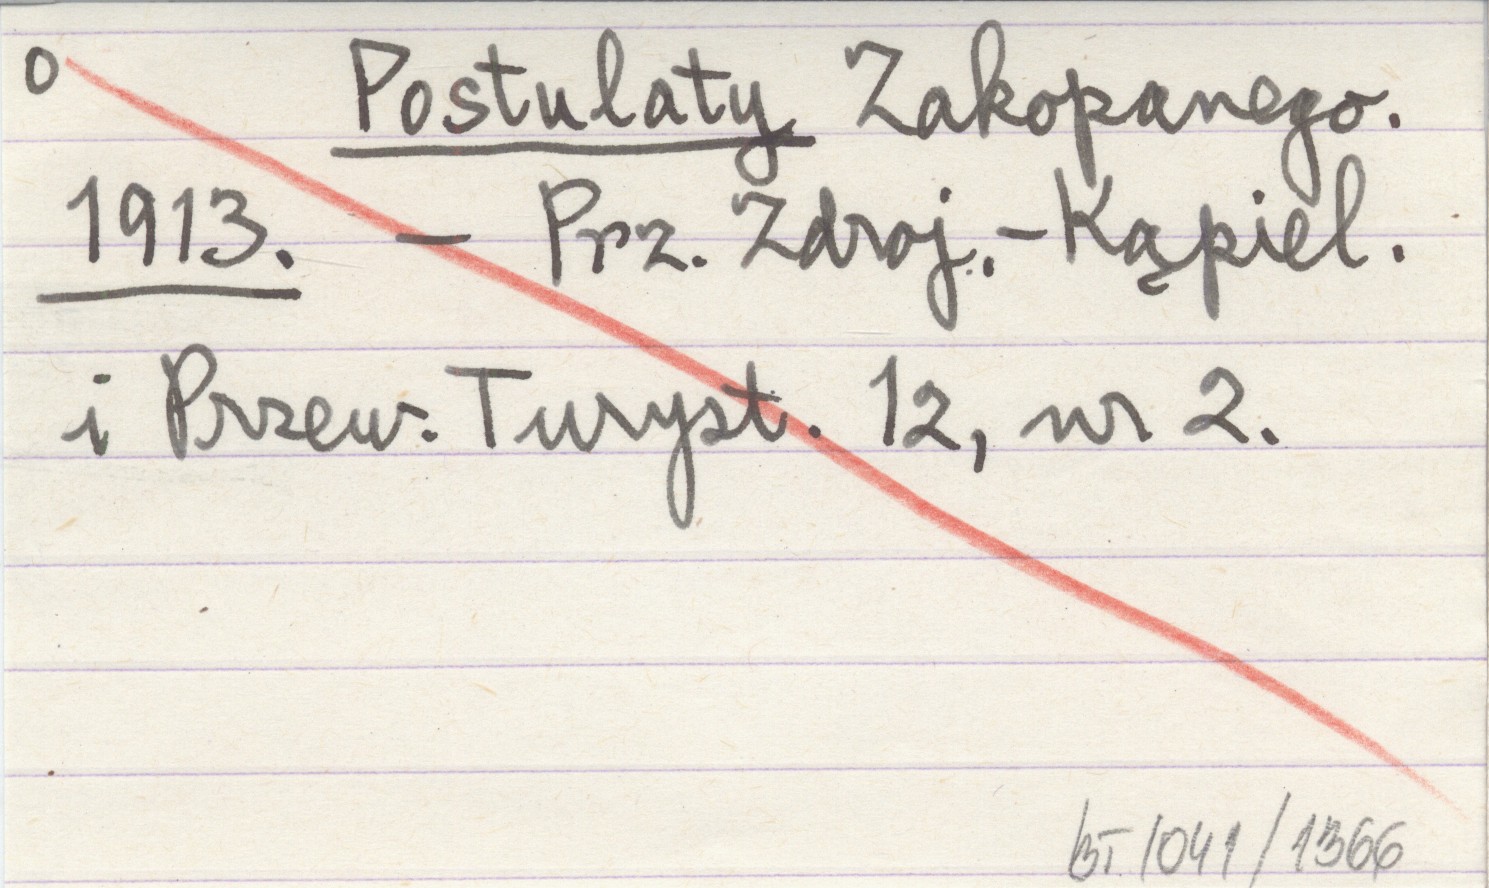 o Postulaty Zakopanego.
1913. - Prz. Zdroj.-Kąpiel.
i Przew. Turyst. 12, nr 2.
BT. 1041/1366